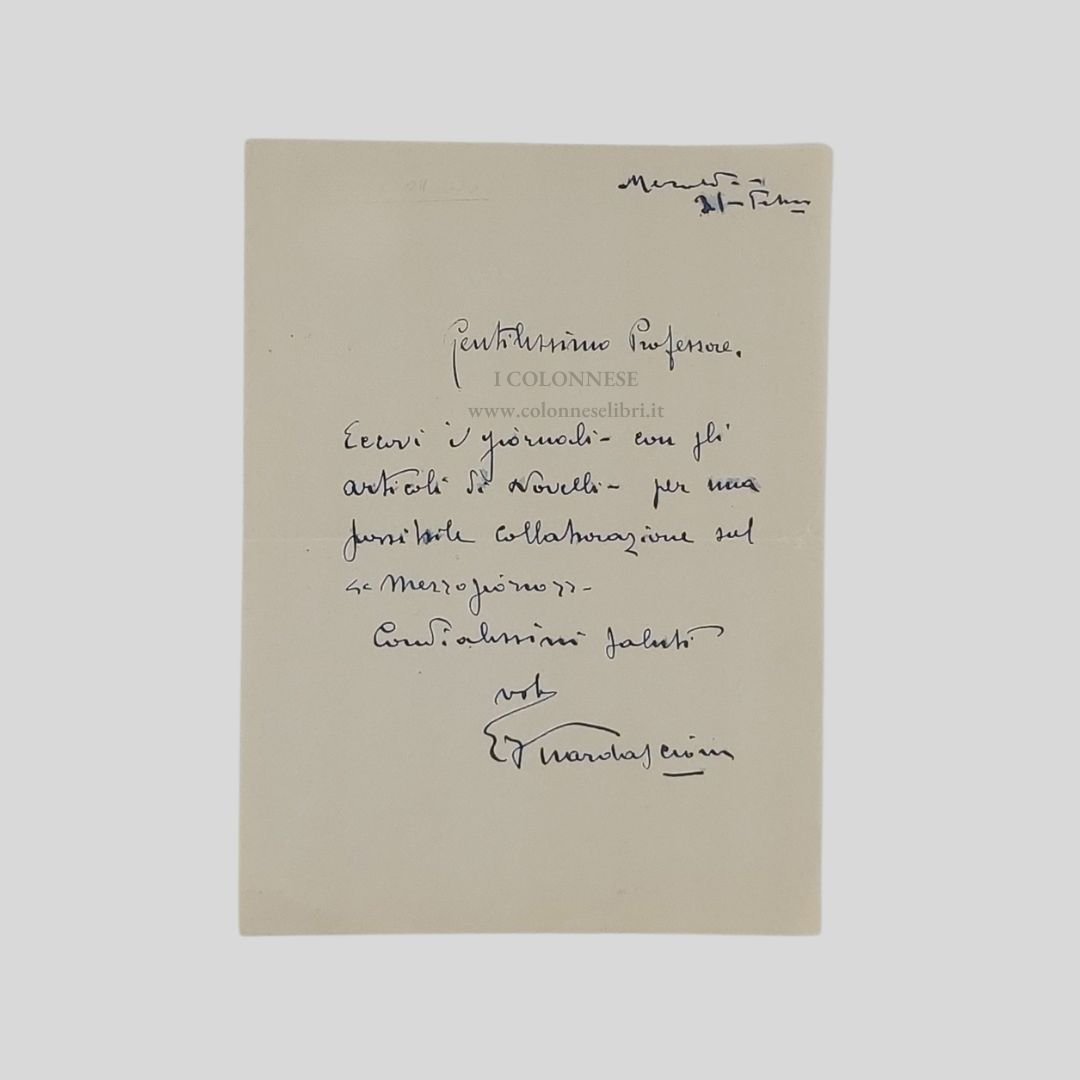 Gentilissimo Professore.
I COLONNESE
www.colonneselibri.it
Eccovi i giornali - con gli
articoli di Novelli - per una
possibile collaborazione sul
"Mezzogiorno" -
Cordialissimi saluti